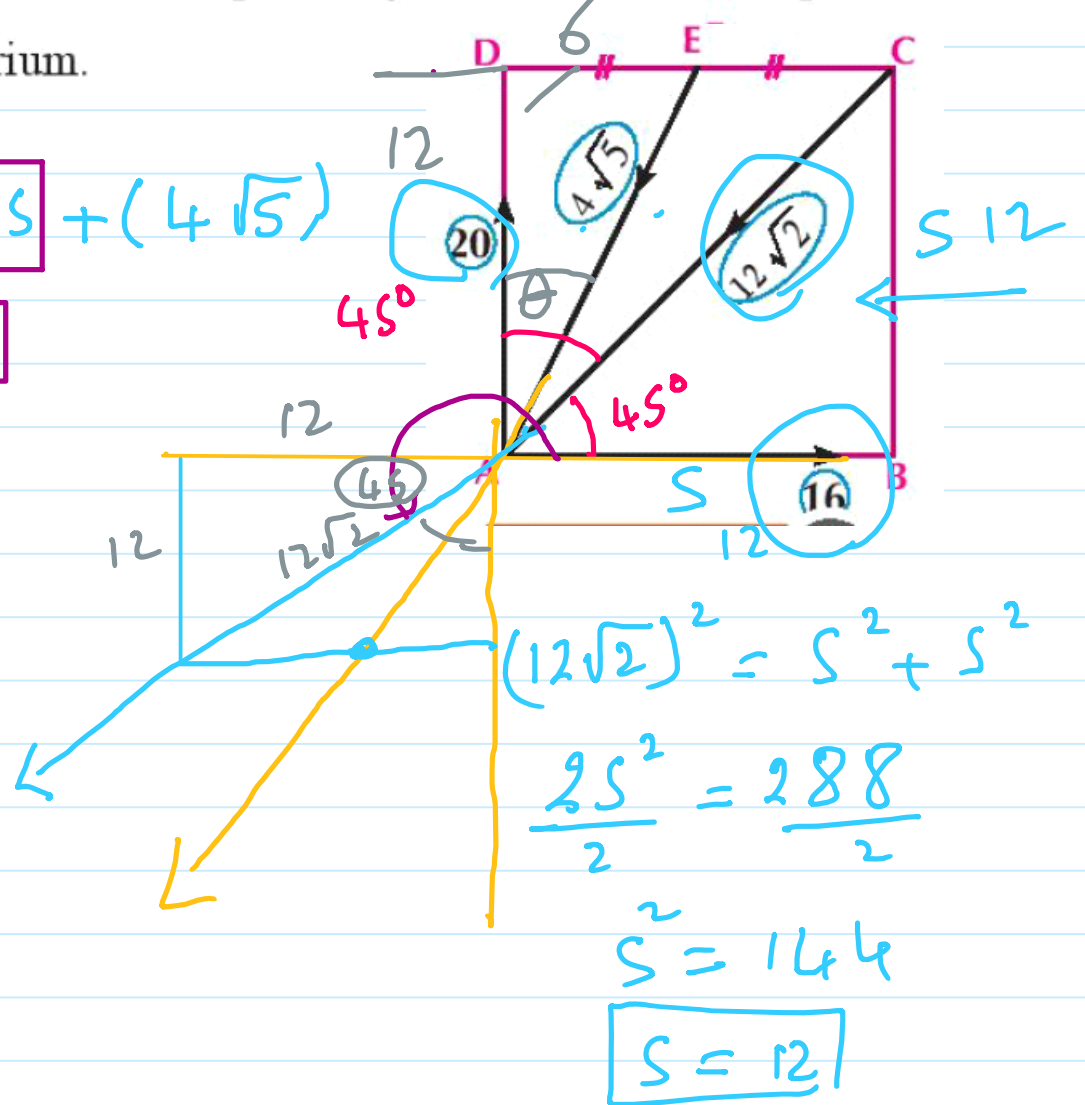 rium.
D 6 E C
12
S + (4√5)
20
4√5
12√2
S 12
θ
45°
45°
12
A
B
45
S
16
12
12√2
12
(12√2)² = S² + S²
2S²/2 = 288/2
S² = 144
S = 12